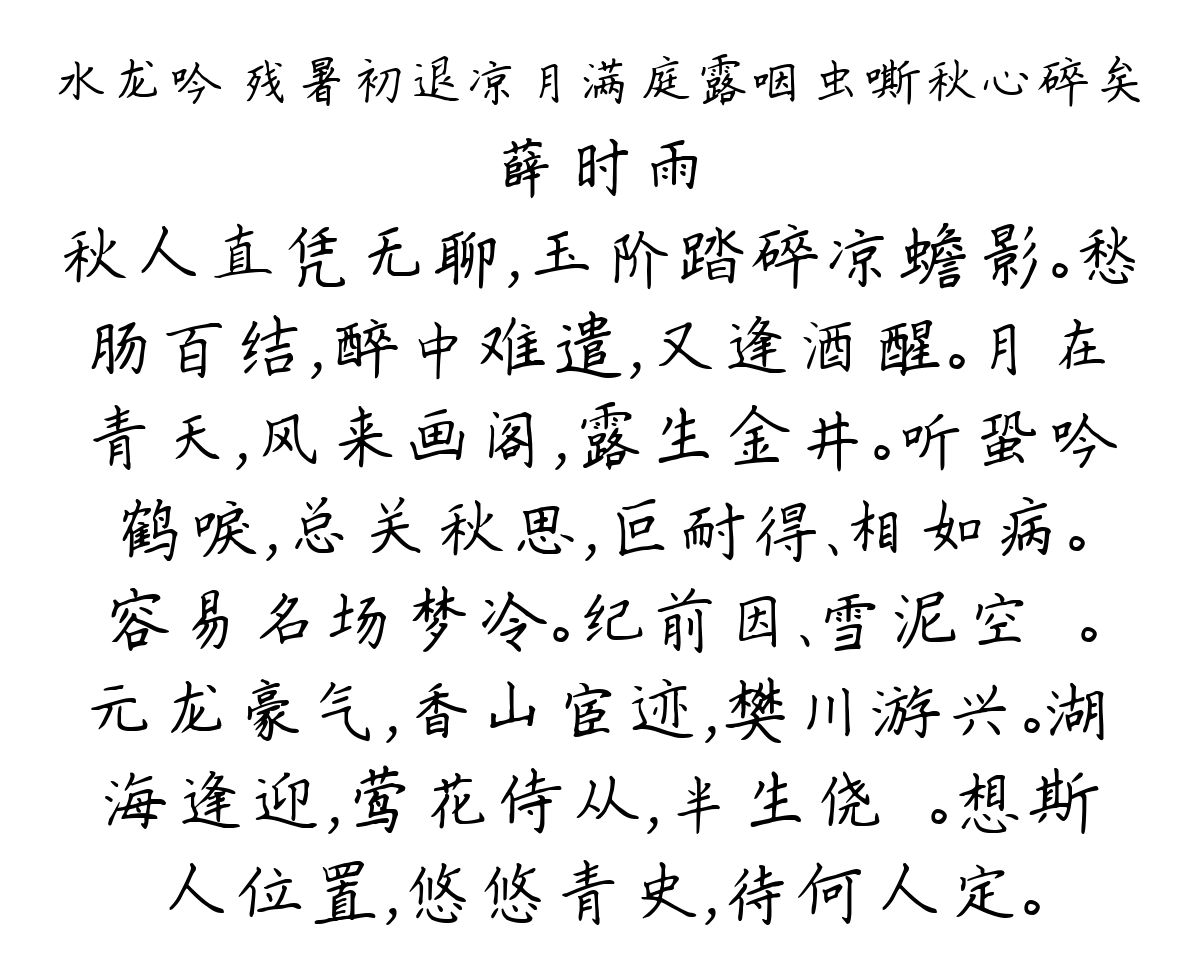 水龙吟 残暑初退凉月满庭露咽虫嘶秋心碎矣
薛时雨
秋人直凭无聊,玉阶踏碎凉蟾影。愁
肠百结,醉中难遣,又逢酒醒。月在
青天,风来画阁,露生金井。听蛩吟
鹤唳,总关秋思,叵耐得、相如病。
容易名场梦冷。纪前因、雪泥空 。
元龙豪气,香山宦迹,樊川游兴。湖
海逢迎,莺花侍从,半生侥 。想斯
人位置,悠悠青史,待何人定。